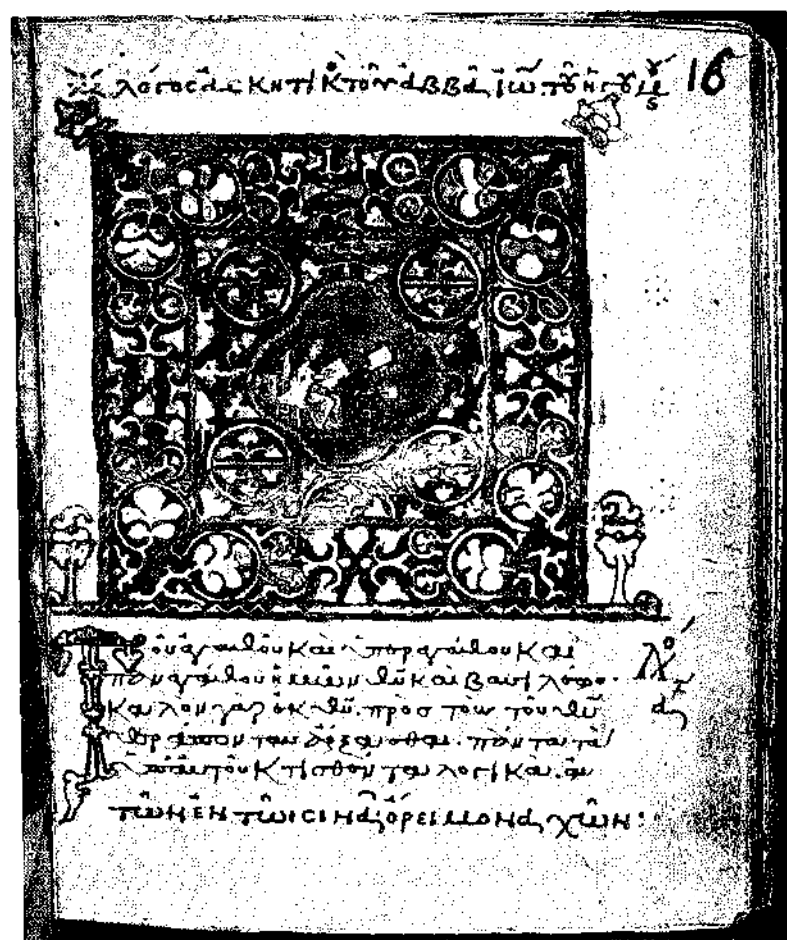 λόγος ἀσκητικ τοῦ ἀββᾶ ἰω τοῦ ἡγουμ 16
Τοῦ ἀγαθοῦ καὶ ὑπεραγάθου καὶ
παναγάθου ἡμῶν θῦ καὶ βασιλέως·
καλὸν γὰρ ἐκ θῦ. πρὸς τοὺς τοῦ θῦ
θεράποντας ἄρξασθαι. πάντων τῶν
ὑπ' αὐτοῦ κτισθέντων λογικῶν. ἀν
τῶν ἐν τῶι σινᾶ ὄρει μοναχῶν:
λο
α